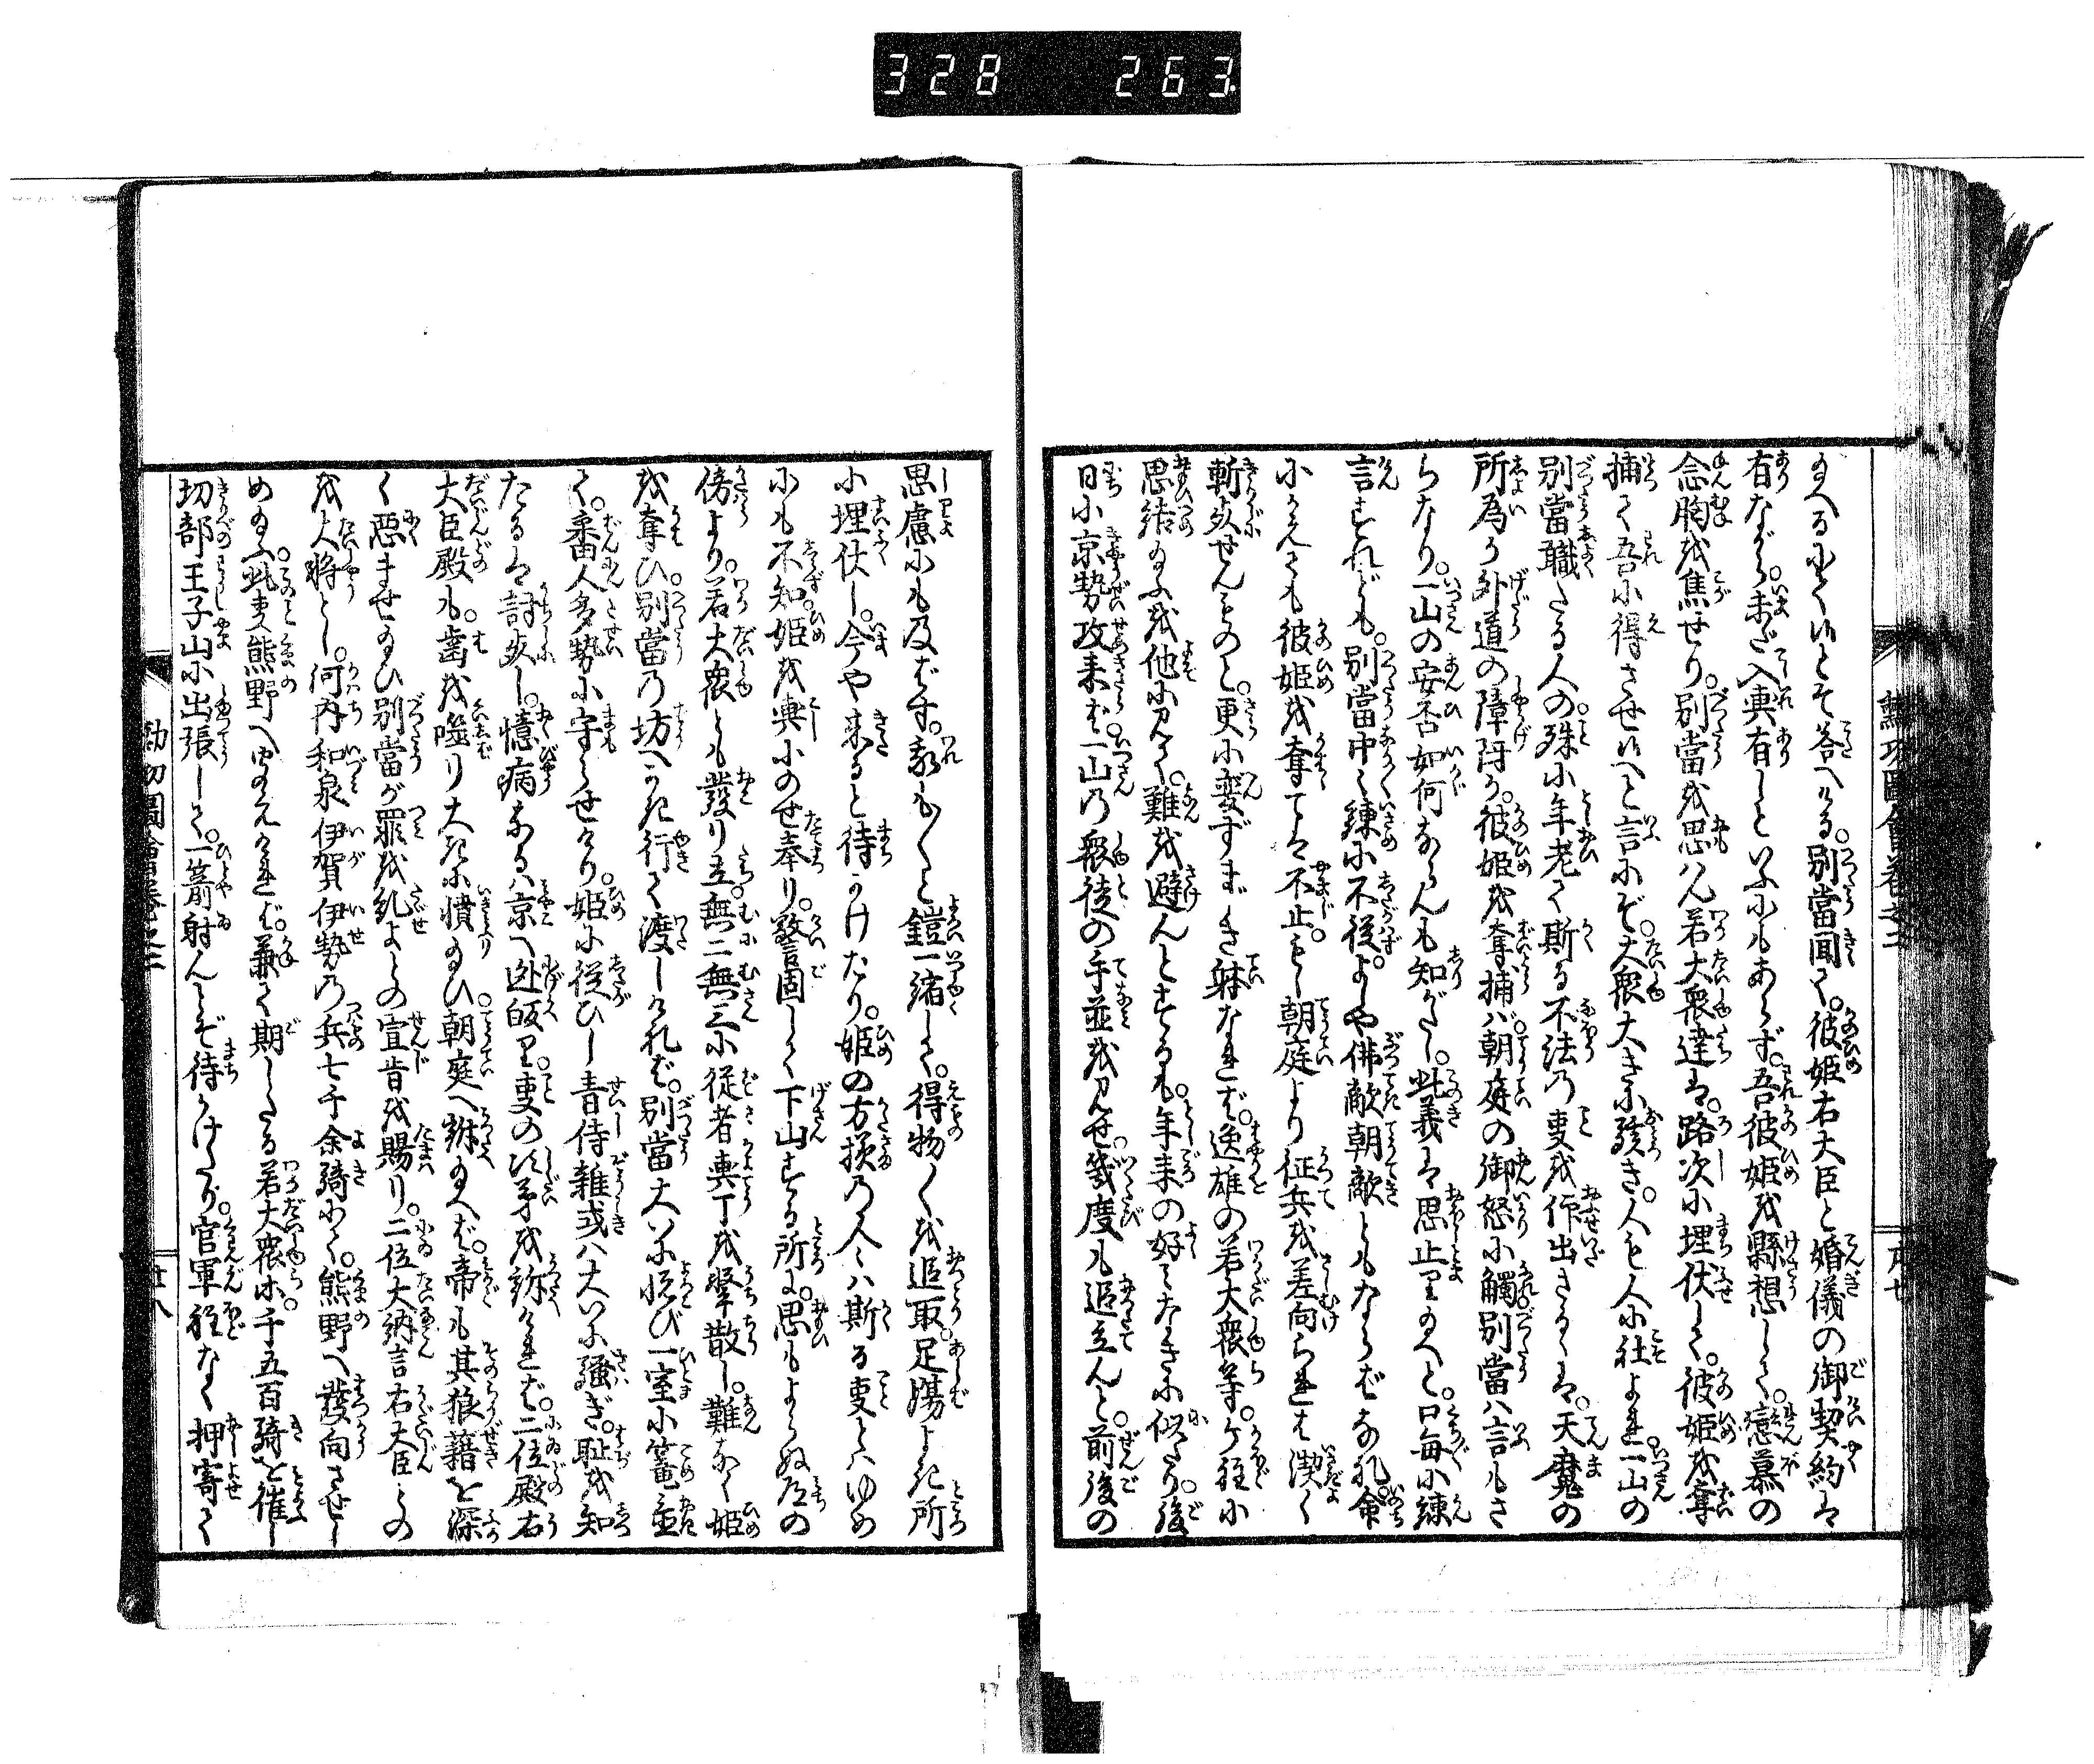 328 263
給へるにて候とぞ答へける。別當聞て。彼姫右大臣と婚儀の御契約は
有ながら。未だ入輿有しといふにもあらず。吾彼姫を懸想して。戀慕の
念胸を焦せり。別當を思はん若大衆達は。路次に埋伏して。彼姫を奪
捕て吾に得させ候へと言にぞ。大衆大きに駭き。人も人に社よれ一山の
別當職たる人の。殊に年老て斯る不法の事を仕出さるゝは。天魔の
所為か外道の障碍か。彼姫を奪捕ば。朝庭の御怒に觸。別當ハ言もさ
らなり。一山の安否如何ならんも知がたし。此義は思止り給へと。口毎に練
言すれども。別當中々練に不従。よしや佛敵朝敵ともならばなれ。命
にかへても彼姫を奪では不止。もし朝庭より征兵を差向られなば潔く
斬死せんものと。更に変ずまじき躰なれば。逸雄の若大衆等。ケ程に
思結給ふを他に見て。難を避んとするも。年来の好みなきに似たり。後
日に京勢攻来ば。一山の衆徒の手並を見せ。幾度も追立んと。前後の
思慮にも及ばず。我も〳〵と鎧一縮して。得物〳〵を追取。足場よき所
に埋伏し。今や来ると待かけたり。姫の方様の人々ハ斯る事とハゆめ
にも不知。姫を輿にのせ奉り。警固して下山する所に。思もよらぬ左の
傍より。若大衆ども發り立。無二無三に従者輿丁を撃散し。難なく姫
を奪ひ。別當の坊へかき行て渡しければ。別當大いに悦び一室に篭置
て。番人多勢に守らせけり。姫に従ひし青侍雑式ハ大いに騒ぎ。耻を知
たるは討死し。憶病なるハ京へ迯皈り。事の次第を訴ければ。二位殿右
大臣殿も。歯を噬り大きに憤給ひ。朝庭へ訴給へば。帝も其狼藉を深
く悪ませ給ひ別當が罪を糺よとの宣旨を賜り。二位大納言右大臣との
を大将とし。河内和泉伊賀伊勢の兵七千余騎にて。熊野へ發向させし
め給ふ。此事熊野へ聞えければ。兼て期したる若大衆等。千五百騎を催し
切部王子山に出張して。一箭射んとぞ待かけたり。官軍程なく押寄て